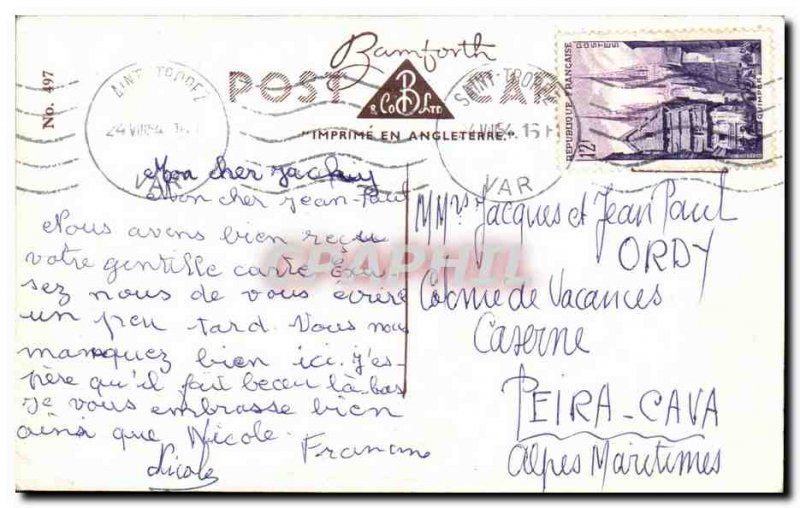 Bamforth
POST CARD
B
& Co Ltd
"IMPRIMÉ EN ANGLETERRE."
No. 497
SAINT-TROPEZ
24 VII 54
VAR
SAINT-TROPEZ
VII 54
VAR
REPUBLIQUE FRANÇAISE
POSTES
12F
QUIMPER
Mon cher Jacky
Mon cher Jean-Paul
Nous avons bien reçu
votre gentille carte. Excu-
sez nous de vous écrire
un peu tard. Vous nous
manquez bien ici. J'es-
père qu'il fait beau là-bas
Je vous embrasse bien
ainsi que Nicole.
Francine
Nicole
MMrs Jacques et Jean Paul
ORDY
Colonie de Vacances
Caserne
PEIRA-CAVA
Alpes Maritimes
CPAPHIL